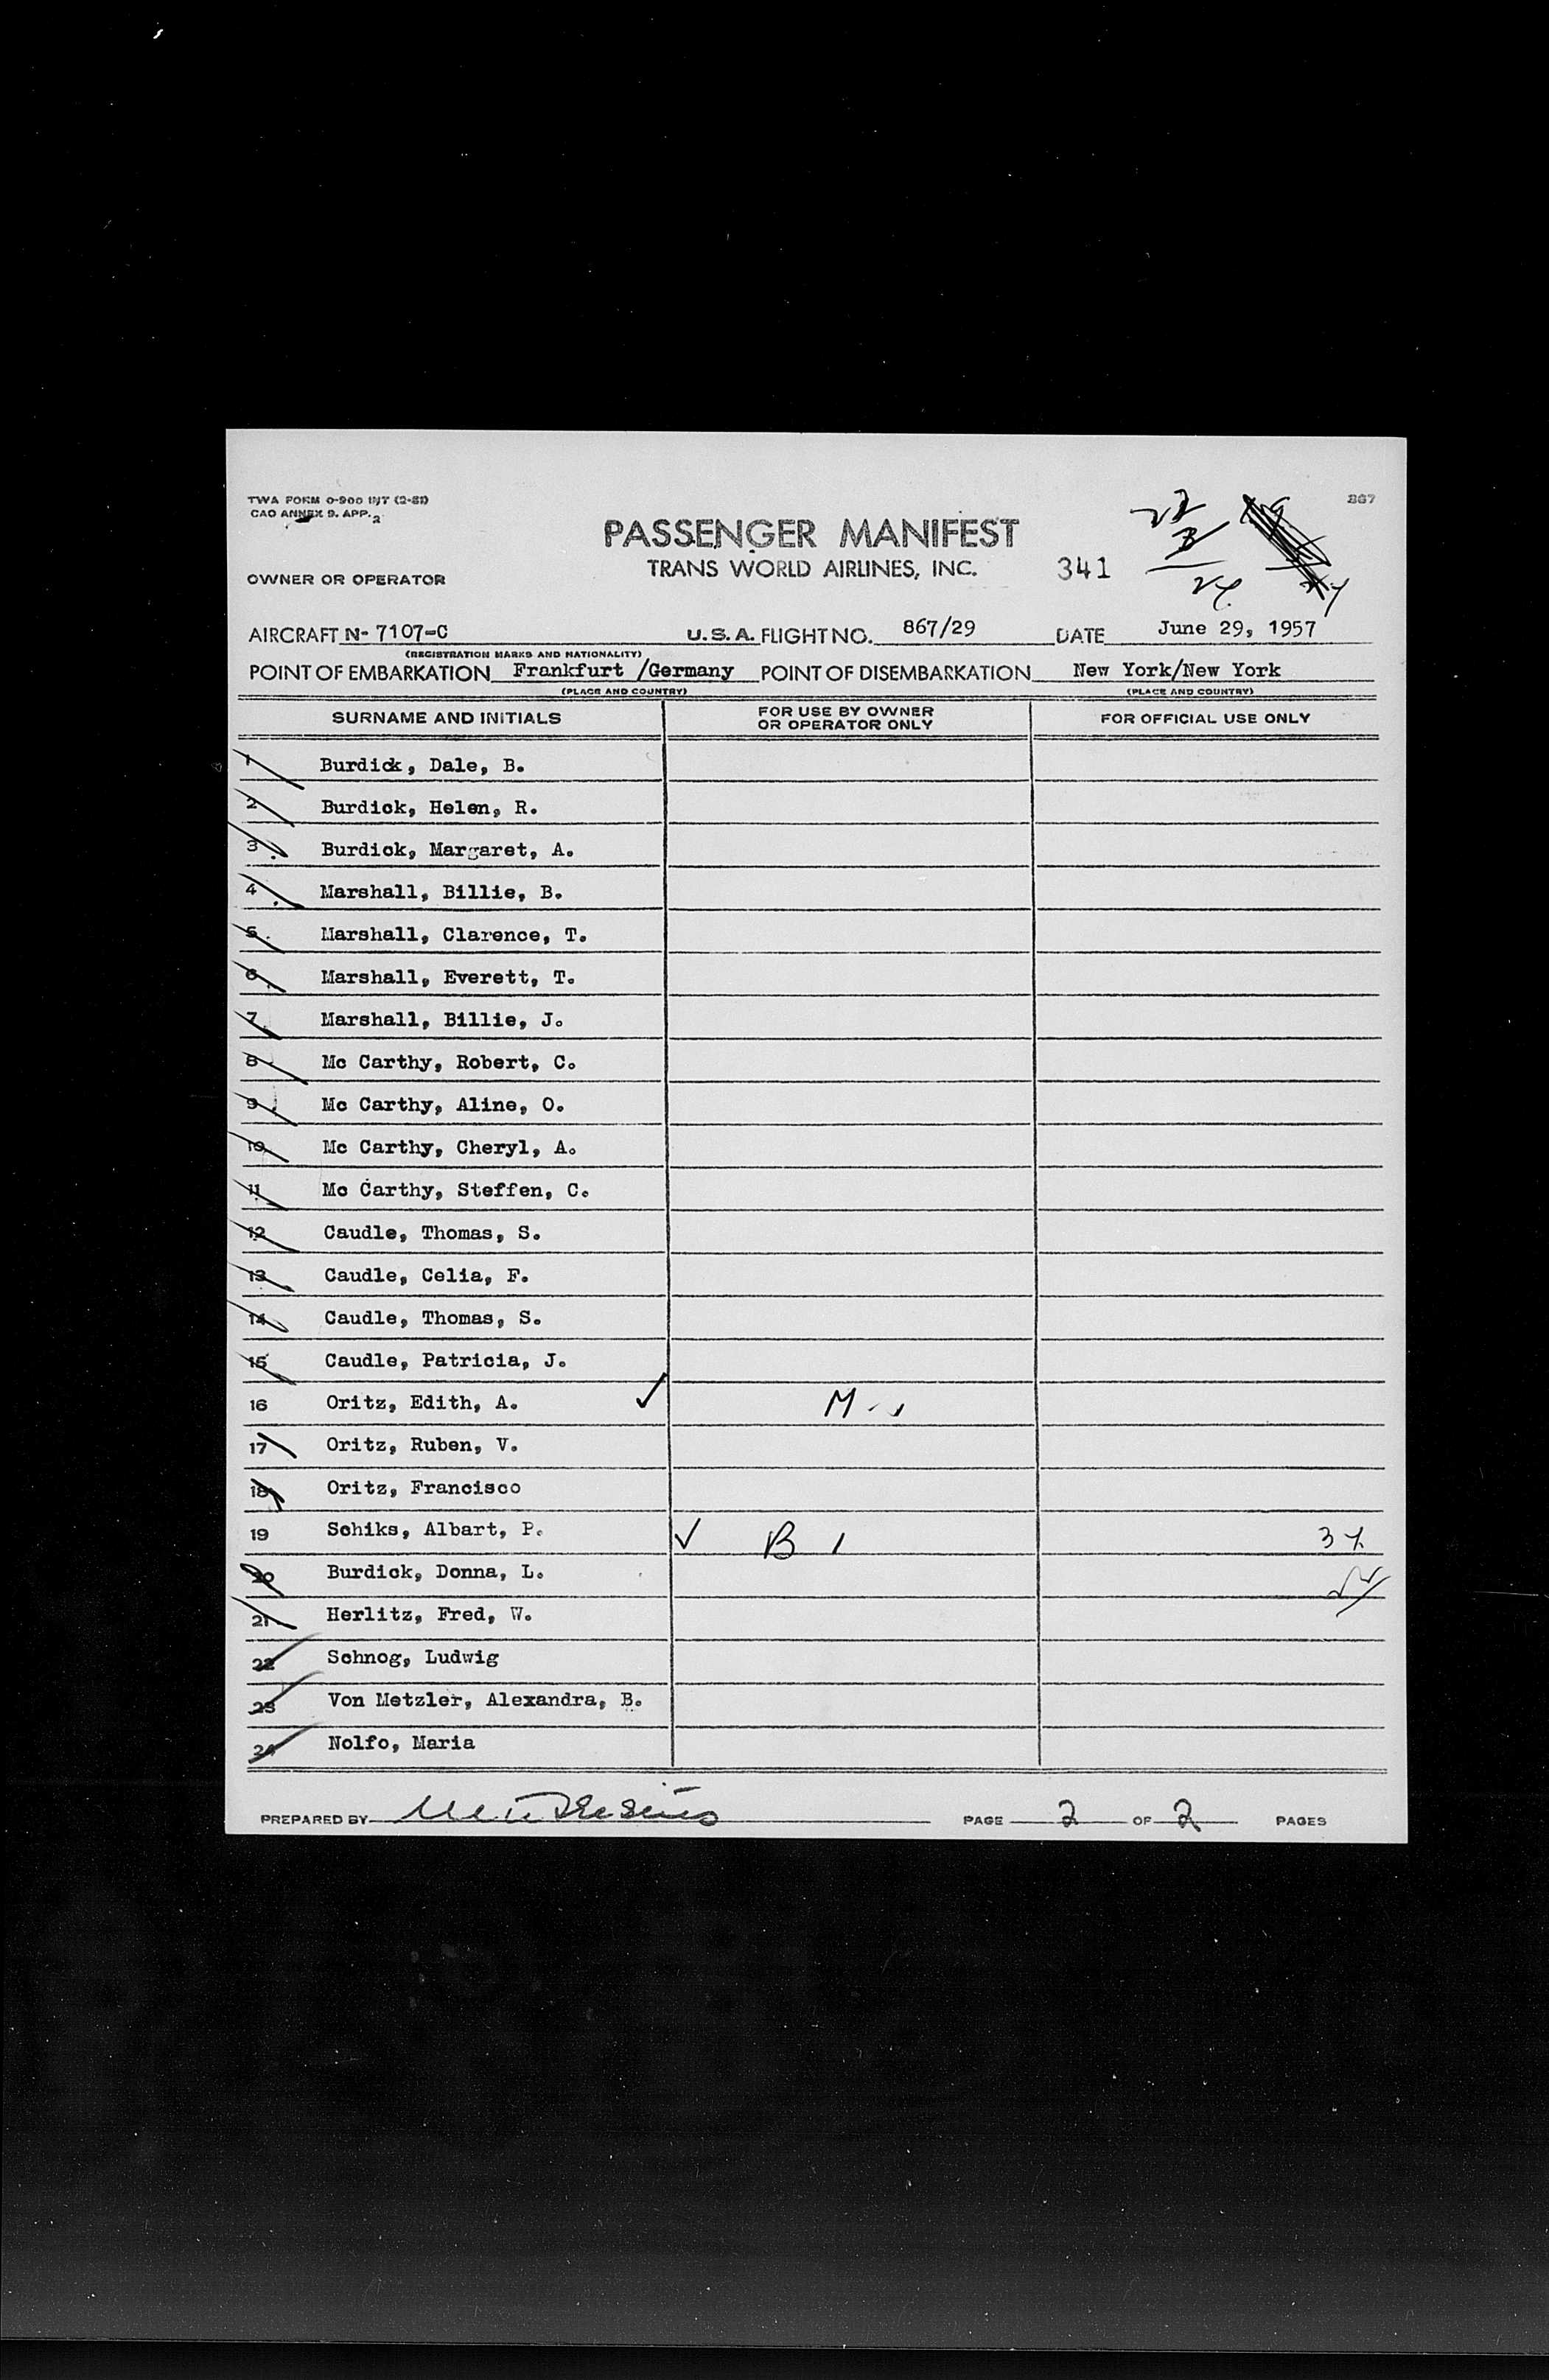 TWA FORM 0-900 INT (2-51)
CAO ANNEX 9. APP. 2
867
PASSENGER MANIFEST
TRANS WORLD AIRLINES, INC.
341
OWNER OR OPERATOR
AIRCRAFT N- 7107-C U.S.A. FLIGHT NO. 867/29 DATE June 29, 1957
(REGISTRATION MARKS AND NATIONALITY)
POINT OF EMBARKATION Frankfurt /Germany POINT OF DISEMBARKATION New York/New York
(PLACE AND COUNTRY) (PLACE AND COUNTRY)
SURNAME AND INITIALS FOR USE BY OWNER OR OPERATOR ONLY FOR OFFICIAL USE ONLY
1 Burdick, Dale, B.
2 Burdick, Helen, R.
3 Burdick, Margaret, A.
4 Marshall, Billie, B.
5 Marshall, Clarence, T.
6 Marshall, Everett, T.
7 Marshall, Billie, J.
8 Mc Carthy, Robert, C.
9 Mc Carthy, Aline, O.
10 Mc Carthy, Cheryl, A.
11 Mc Carthy, Steffen, C.
12 Caudle, Thomas, S.
13 Caudle, Celia, F.
14 Caudle, Thomas, S.
15 Caudle, Patricia, J.
16 Oritz, Edith, A. ✓ M
17 Oritz, Ruben, V.
18 Oritz, Francisco
19 Schiks, Albart, P. ✓ B 1
20 Burdick, Donna, L.
21 Herlitz, Fred, W.
22 Schnog, Ludwig
23 Von Metzler, Alexandra, B.
24 Nolfo, Maria
PREPARED BY PAGE 2 OF 2 PAGES